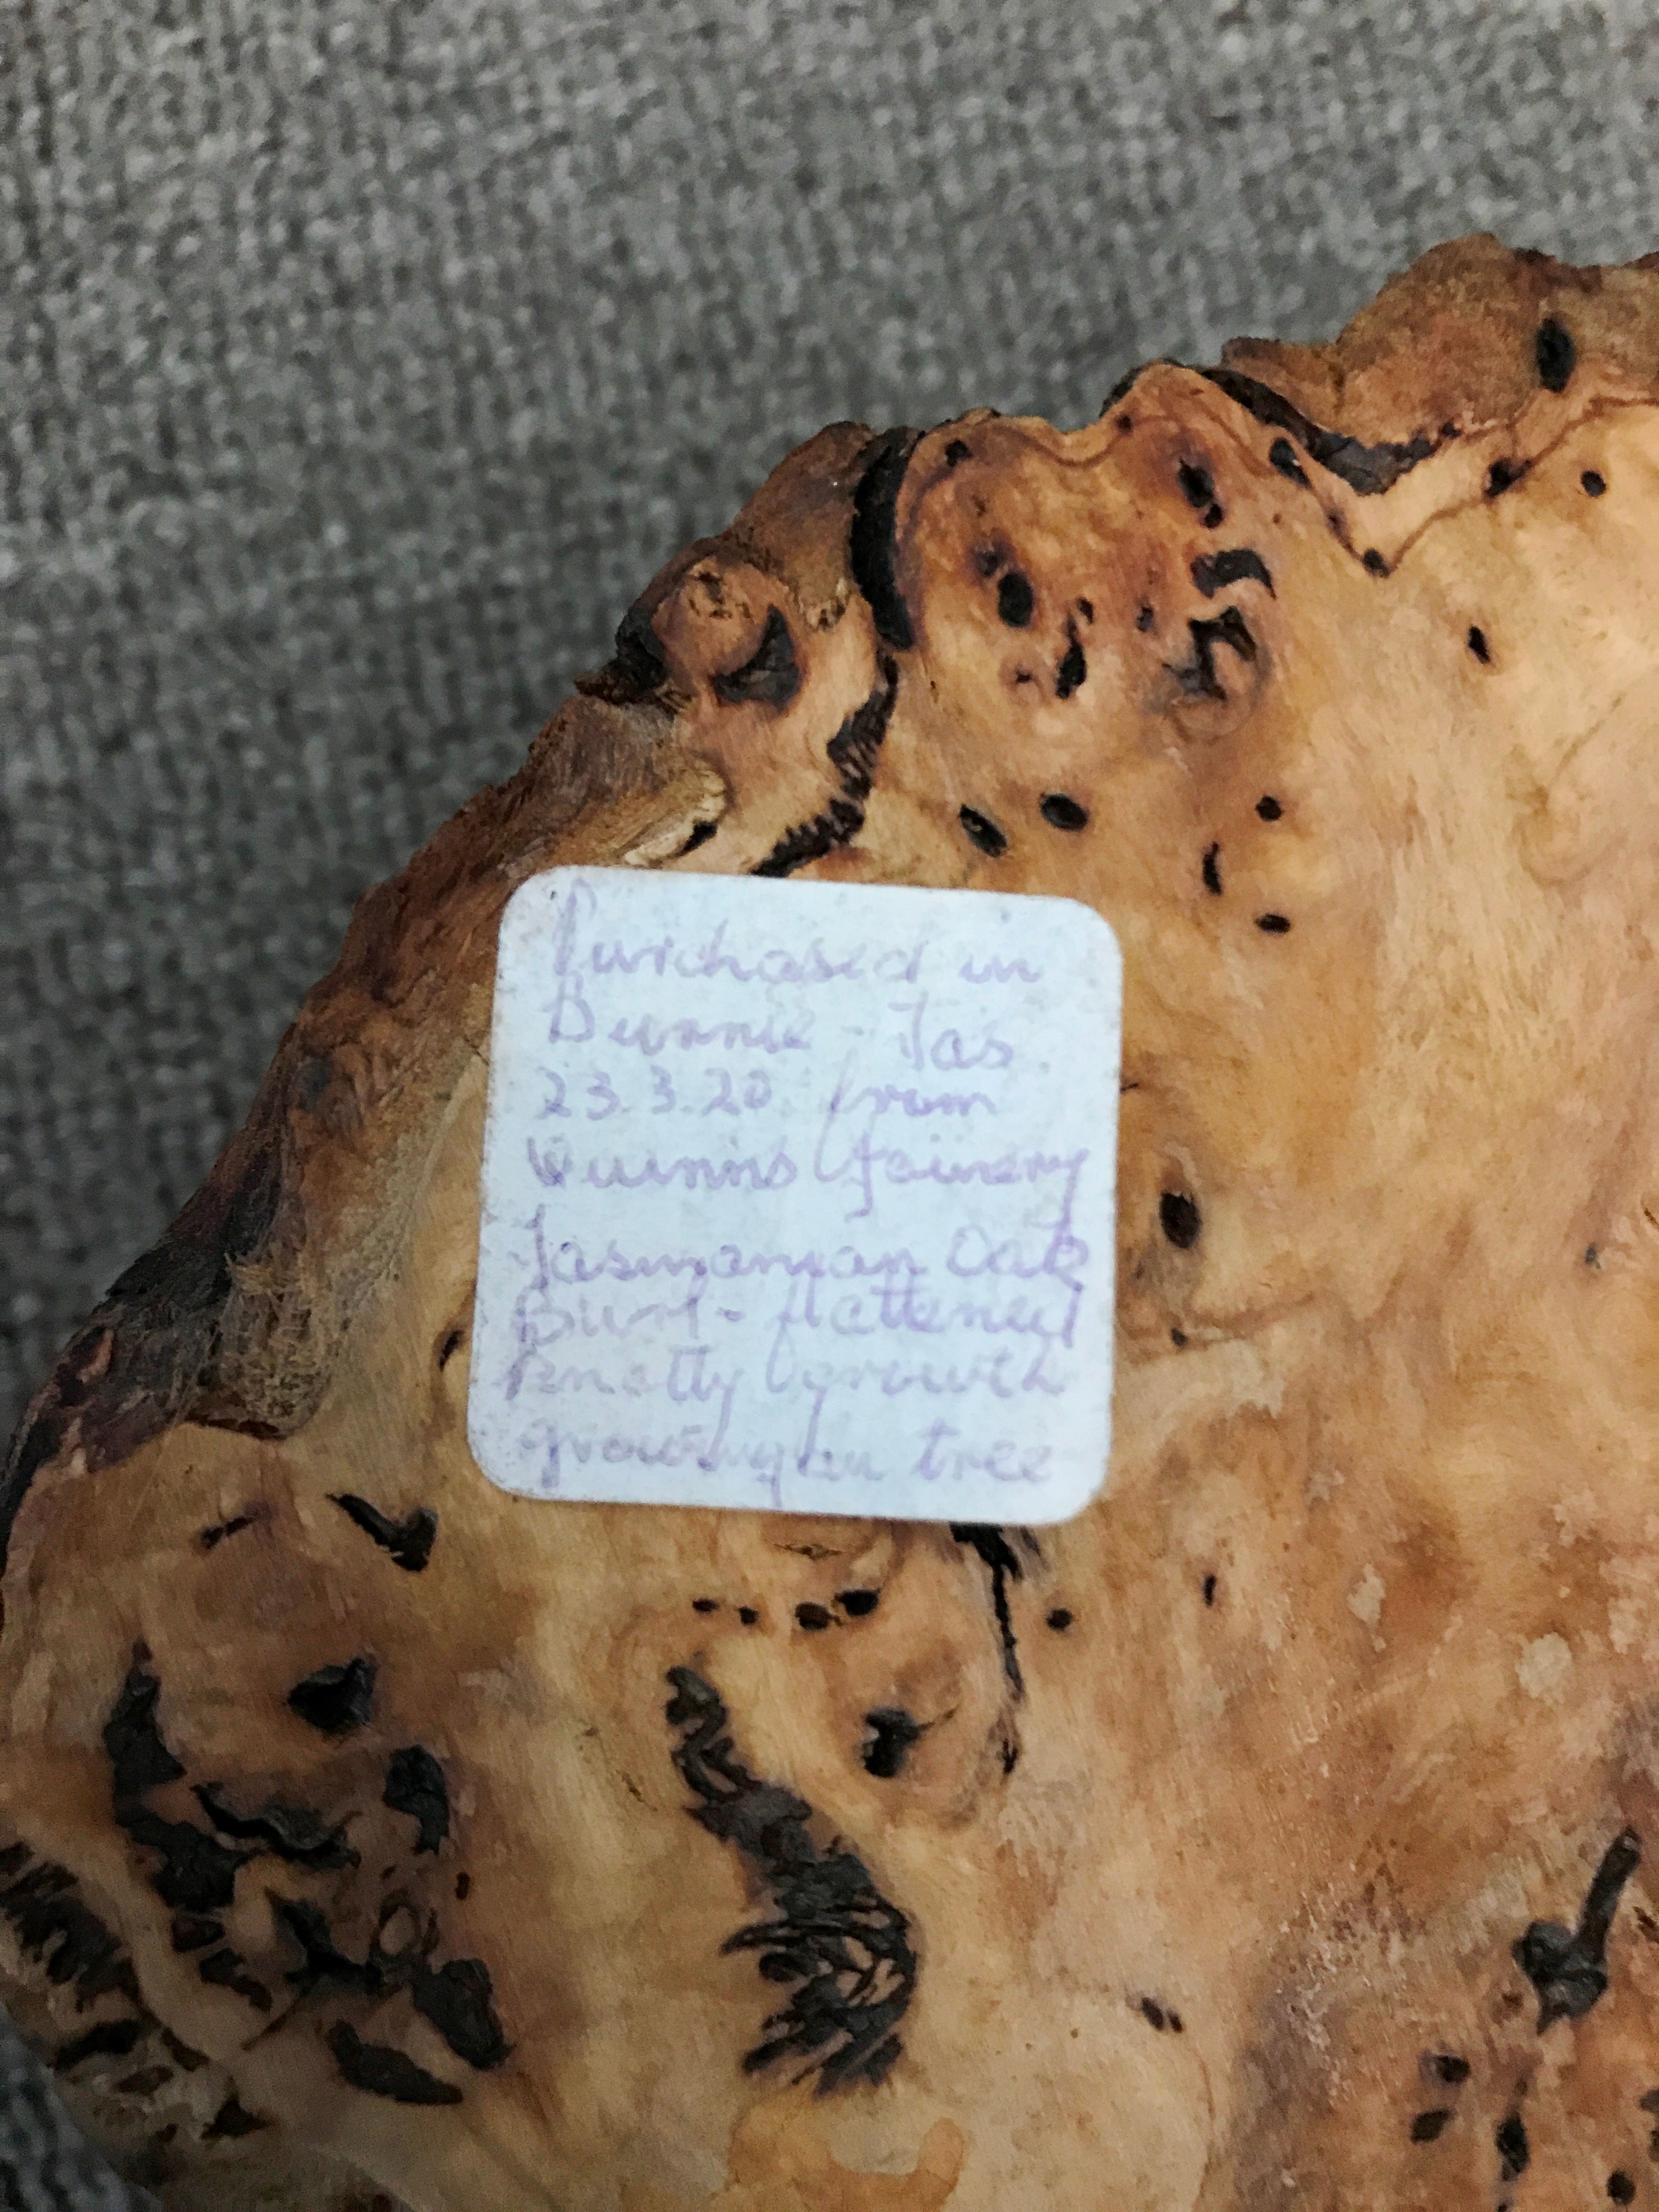 Purchased in
Burnie - Tas
23.3.20 from
Joinery
Tasmanian Oak
Burl - flattened
knotty growth
growing on tree